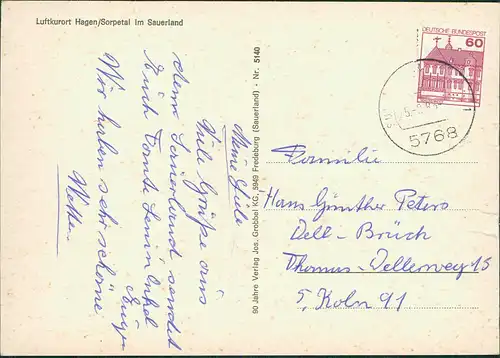 Luftkurort Hagen/Sorpetal im Sauerland
Meine Liebe
Viele Grüße aus
dem Sauerland sendet
Euch Tante Irmi u. Onkel
Eugen
Wir haben sehr schöne
Wetter.
90 Jahre Verlag Jos. Grobbel KG, 5949 Fredeburg (Sauerland) - Nr. 5140
DEUTSCHE BUNDESPOST
60
5768
Familie
Hans Günther Peters
Dell-Brück
Thomas-Dellerweg 15
5, Köln 91